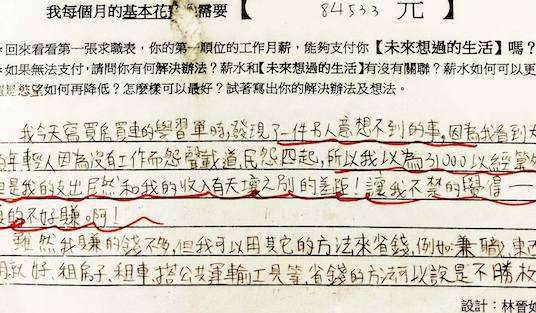 我每個月的基本花 需要【 84533 元 】
*回來看看第一張求職表，你的第一順位的工作月薪，能夠支付你【未來想過的生活】嗎？
*如果無法支付，請問你有何解決辦法？薪水和【未來想過的生活】有沒有關聯？薪水如何可以更
是慾望如何再降低？怎麼樣可以最好？試著寫出你的解決辦法及想法。
我今天寫買房買車的學習單時，發現了一件另人意想不到的事，因為我看到
的年輕人因為沒有工作而怨聲載道，民怨四起，所以我以為31000以經
但是我的支出居然和我的收入有天壤之別的差距！讓我不禁的覺得一
真的不好賺啊！
雖然我賺的錢不多，但我可以用其它的方法來省錢，例如兼職、東西
用就好、租房子、租車、搭公共運輸工具等，省錢的方法可以說是不勝枚
設計：林晉如